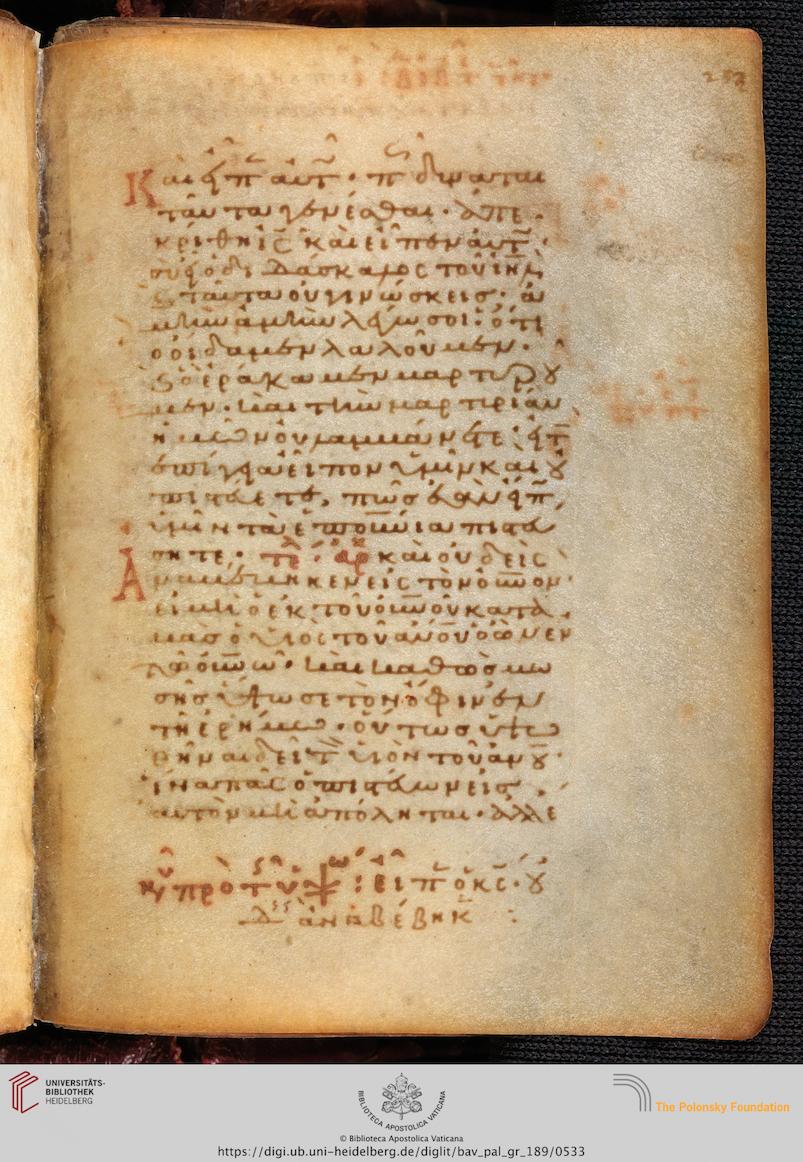 283
Και εἶπ αυτ · π δυναται
ταῦτα γενέσθαι · ἀπε
κρίθη ις καὶ εἶπεν αὐτ ·
συ εἶ ὁ διδάσκαλος τοῦ ιηλ
ταῦτα οὐ γινώσκεις · ἀ
μὴν ἀμὴν λέγω σοι · ὅτι
ὃ οἴδαμεν λαλοῦμεν ·
ὃ ἑωράκαμεν μαρτυροῦ
μεν · καὶ τὴν μαρτυρίαν
ἡμῶν οὐ λαμβάνετε
ἐπίγεια εἶπον ὑμῖν καὶ οὐ
πιστεύετε, πῶς ἐὰν εἴπ
ὑμῖν τὰ επουνια πιστεύ
σητε · τε αρ καὶ οὐδεὶς
Ἀναβέβηκεν εἰς τὸν ουνον
εἰ μὴ ὁ ἐκ τοῦ ουνου κατα
βὰς ὁ υἱὸς τοῦ ανου ὁ ὢν ἐν
τῶ ουνω · καὶ καθὼς μω
σῆς ὕψωσε τὸν ὄφιν ἐν
τῇ ἐρήμω · οὕτως ὑψω
θῆναι δεῖ τ υἱὸν τοῦ ανου ·
ἵνα πᾶς ὁ πιστεύων εἰς
αὐτὸν μὴ ἀπόληται · ἀλλ ε
κυ πρὸ τ υψω : εἶπ ὁ κς · οὐ
δεις ἀναβέβηκ :
UNIVERSITÄTS-
BIBLIOTHEK
HEIDELBERG
BIBLIOTECA APOSTOLICA VATICANA
The Polonsky Foundation
© Biblioteca Apostolica Vaticana
https://digi.ub.uni-heidelberg.de/diglit/bav_pal_gr_189/0533